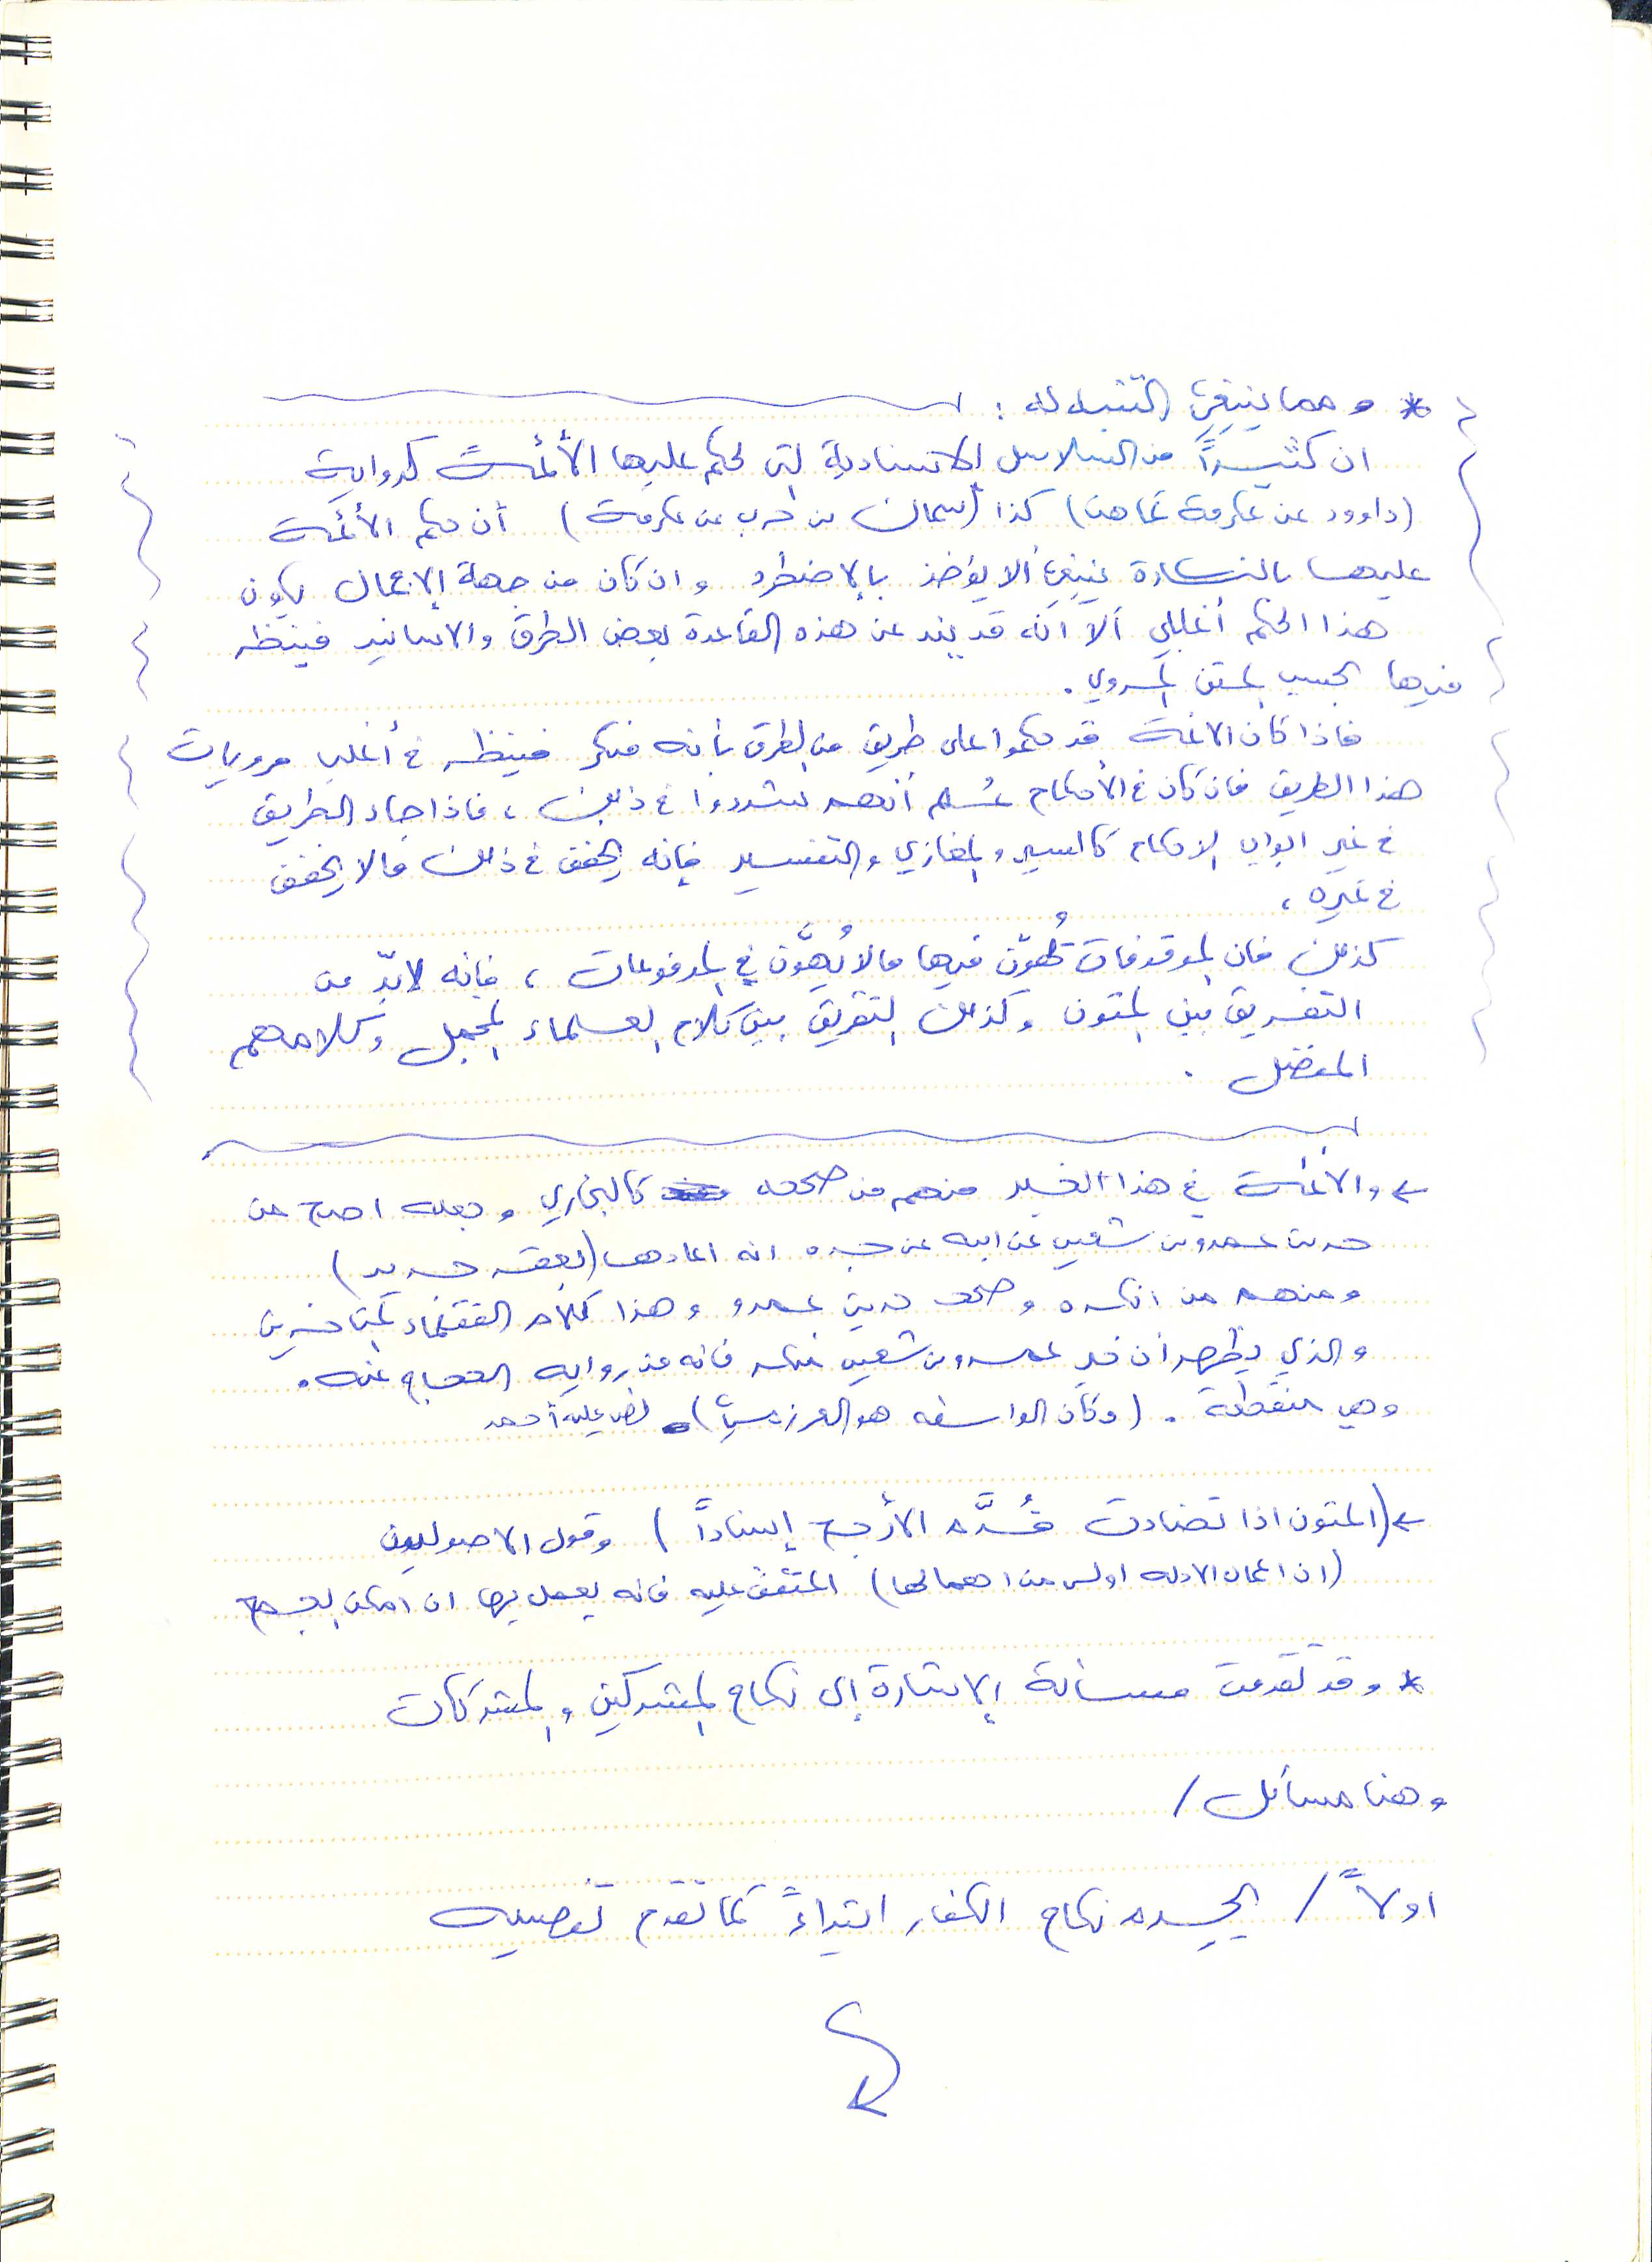 * ومما ينبغي التنبه له :
ان كثيراً من السلاسل الاسنادية التي يحكم عليها الأئمة كرواية
(داوود عن عكرمة كما هنا) كذا (سماك بن حرب عن عكرمة) أن حكم الأئمة
عليها بالنكارة ينبغي ألا يؤخذ بالاضطرد وان كان من جهة الإعمال يكون
هذا الحكم أغلبي ألا أنه قد يند عن هذه القاعدة بعض الطرق والاسانيد فينظر
فيها بحسب المتن المروي .
فاذا كان الائمة قد حكموا على طريق من الطرق بأنه منكر فينظر في أغلب مرويات
هذا الطريق فان كان في الأحكام عُلم أنهم تشددوا في ذلك ، فاذا جاء الطريق
في غير ابواب الاحكام كالسير والمغازي والتفسير فإنه يخفف في ذلك مالا يخفف
في غيره ،
كذلك فان الموقوفات يُهوّن فيها مالا يُهوَّن في المرفوعات ، فإنه لابدّ من
التفريق بين المتون وكذلك التفريق بين كلام العلماء المجمل وكلامهم
المفصل .
← والائمة في هذا الخبر منهم من صححه كالبخاري وجعله اصح من
حديث عمرو بن شعيب عن ابيه عن جده انه اعادها (بعقد جديد)
ومنهم من انكره وصحح حديث عمرو وهذا كلام الفقهاء المتأخرين
والذي يظهر ان خبر عمرو بن شعيب منكر فانه من رواية الحجاج عنه .
وهي منقطعة . (وكأن الواسطه هو العرزمي) نص عليه أحمد
← (المتون اذا تضادت قُدِّم الأرجح إسناداً) وقول الاصوليين
(ان اعمال الادله اولى من اهمالها) المتفق عليه فانه يعمل بها ان امكن الجمع
* وقد تقدمت مسألة الاشارة إلى نكاح المشركين والمشركات
وهنا مسائل /
اولاً / يحرم نكاح الكفار ابتداءً كما تقدم تفصيله